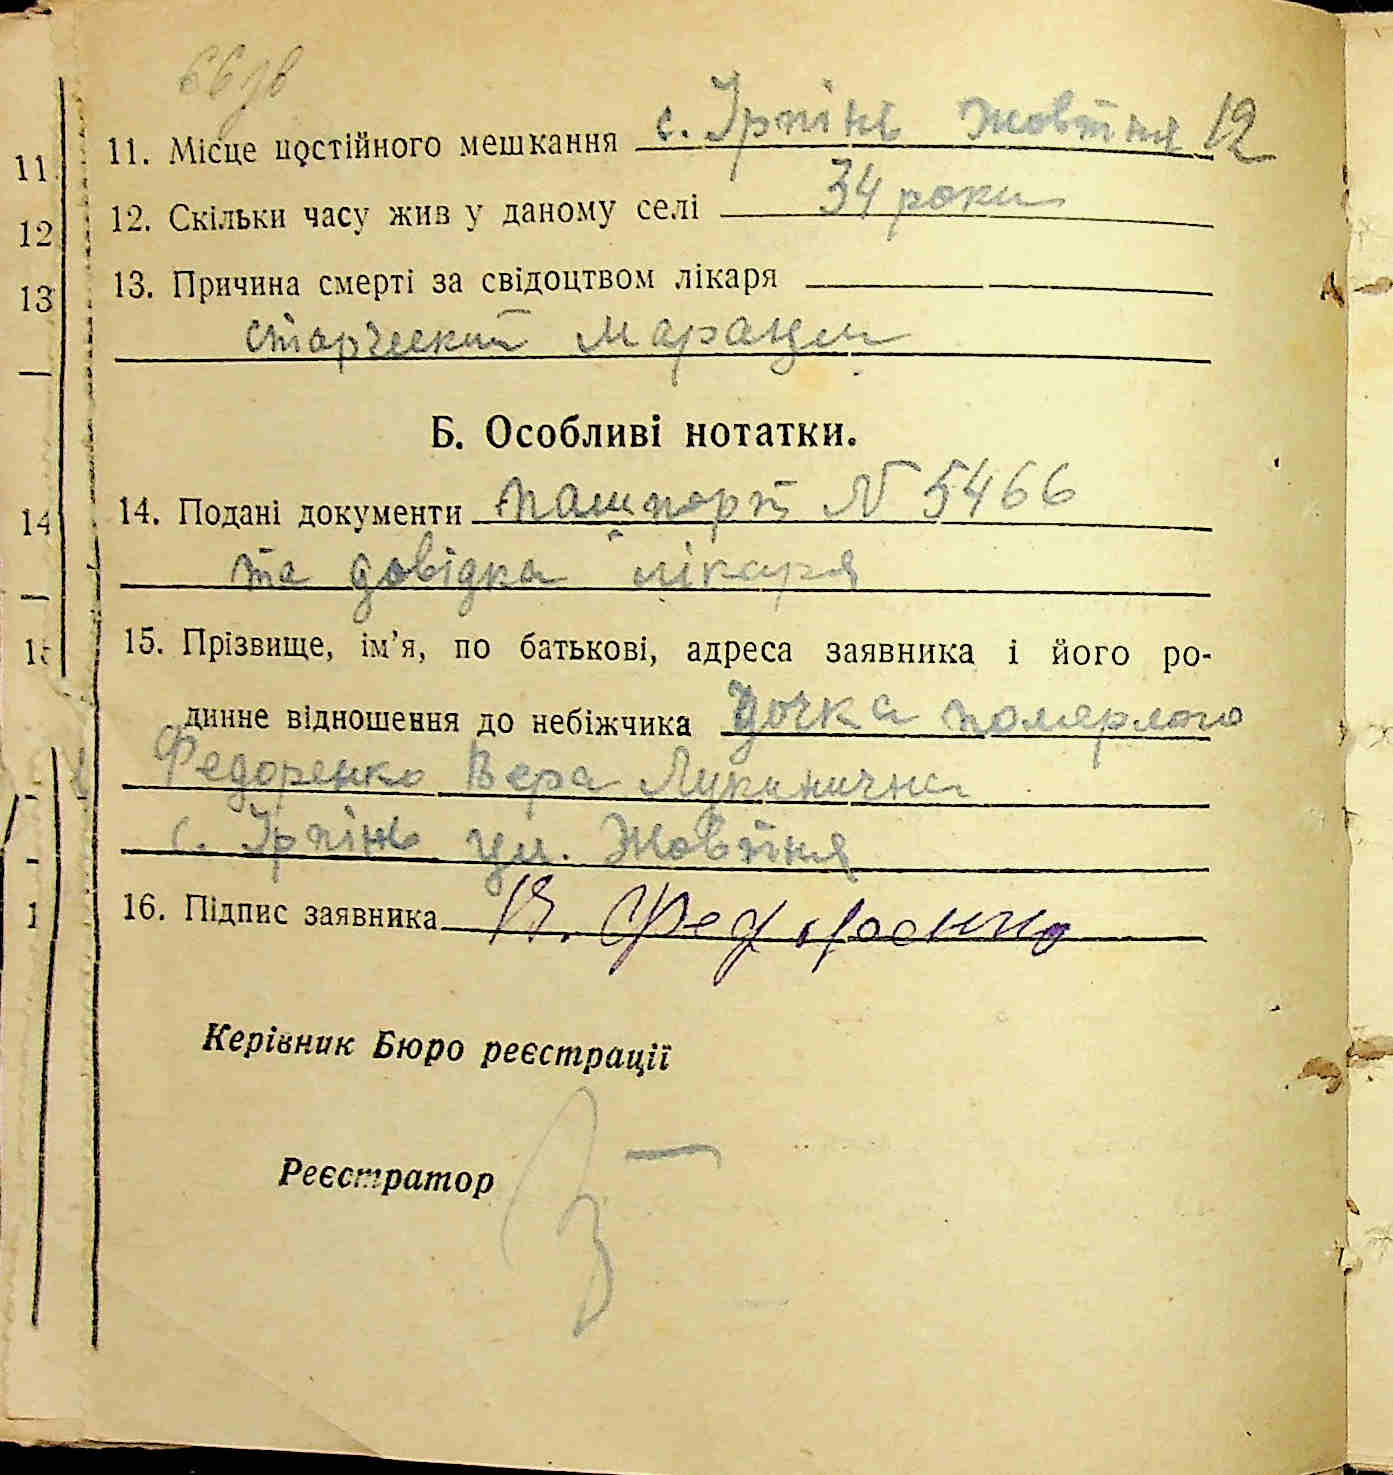 66зв
11. Місце постійного мешкання с. Ірпінь Жовтня 12
12. Скільки часу жив у даному селі 34 роки
13. Причина смерті за свідоцтвом лікаря
старческий маразм
Б. Особливі нотатки.
14. Подані документи пашпорт N 5466
та довідка лікаря
15. Прізвище, ім’я, по батькові, адреса заявника і його ро-
динне відношення до небіжчика дочка померлого
Федоренко Вера Лукинична
с. Ірпінь ул. Жовтня
16. Підпис заявника В. Федоренко
Керівник Бюро реєстрації
Реєстратор
11
12
13
14
15
1